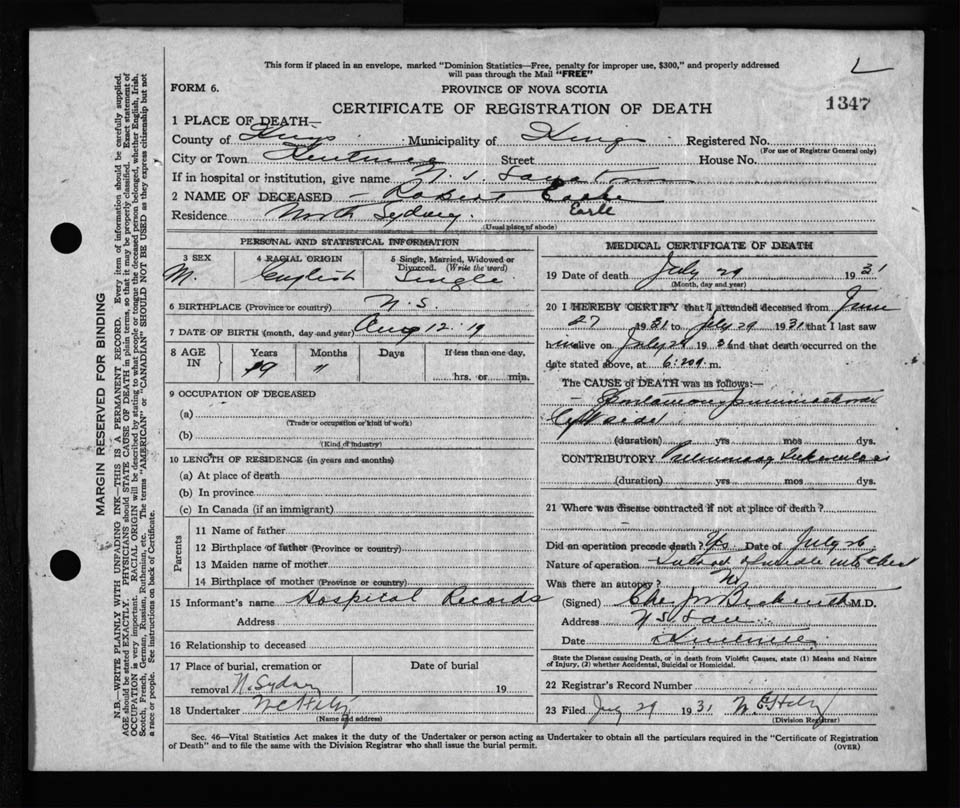 This form if placed in an envelope, marked "Dominion Statistics—Free, penalty for improper use, $300," and properly addressed
will pass through the Mail "FREE"
L
FORM 6.
PROVINCE OF NOVA SCOTIA
CERTIFICATE OF REGISTRATION OF DEATH
1347
1 PLACE OF DEATH—
County of Kings Municipality of Kings Registered No.
(For use of Registrar General only)
City or Town Kentville Street House No.
If in hospital or institution, give name N. S. Sanatorium
2 NAME OF DECEASED Robert Earle
Earle
Residence North Sydney.
(Usual place of abode)
PERSONAL AND STATISTICAL INFORMATION
3 SEX
M.
4 RACIAL ORIGIN
English
5 Single, Married, Widowed or
Divorced. (Write the word)
Single
6 BIRTHPLACE (Province or country) N. S.
7 DATE OF BIRTH (month, day and year) Aug 12 : 19
8 AGE
IN
Years Months Days If less than one day,
19 11
hrs. or min.
9 OCCUPATION OF DECEASED
(a)
(Trade or occupation or kind of work)
(b)
(Kind of industry)
10 LENGTH OF RESIDENCE (in years and months)
(a) At place of death
(b) In province
(c) In Canada (if an immigrant)
Parents
11 Name of father
12 Birthplace of father (Province or country)
13 Maiden name of mother
14 Birthplace of mother (Province or country)
15 Informant's name Hospital Records
Address
16 Relationship to deceased
17 Place of burial, cremation or Date of burial
removal N. Sydney 19
18 Undertaker
(Name and address)
MEDICAL CERTIFICATE OF DEATH
19 Date of death July 29 1931
(Month, day and year)
20 I HEREBY CERTIFY that I attended deceased from June
27 1931 to July 29 1931 that I last saw
him alive on July 29 1931 and that death occurred on the
date stated above, at 6:20 m.
The CAUSE of DEATH was as follows:—
Spontaneous pneumothorax
(duration) yrs mos dys.
CONTRIBUTORY Pulmonary Tuberculosis
(duration) yrs mos dys.
21 Where was disease contracted if not at place of death?
Did an operation precede death? Yes Date of July 26
Nature of operation chest
Was there an autopsy? No
(Signed) M.D.
Address N S San
Date Kentville
State the Disease causing Death, or in death from Violent Causes, state (1) Means and Nature
of Injury, (2) whether Accidental, Suicidal or Homicidal.
22 Registrar's Record Number
23 Filed July 29 1931
(Division Registrar)
Sec. 46—Vital Statistics Act makes it the duty of the Undertaker or person acting as Undertaker to obtain all the particulars required in the "Certificate of Registration
of Death" and to file the same with the Division Registrar who shall issue the burial permit.
(OVER)
MARGIN RESERVED FOR BINDING
N.B.—WRITE PLAINLY WITH UNFADING INK—THIS IS A PERMANENT RECORD. Every item of information should be carefully supplied.
AGE should be stated EXACTLY. PHYSICIANS should STATE CAUSE OF DEATH in plain terms, so that it may be properly classified. Exact statement of
OCCUPATION is very important. RACIAL ORIGIN will be described by stating to what people or tongue the deceased person belonged, whether English, Irish,
Scotch, French, German, Russian, Ruthenian, etc. The terms "AMERICAN" or "CANADIAN" SHOULD NOT BE USED as they express citizenship but not
a race or people. See instructions on back of Certificate.